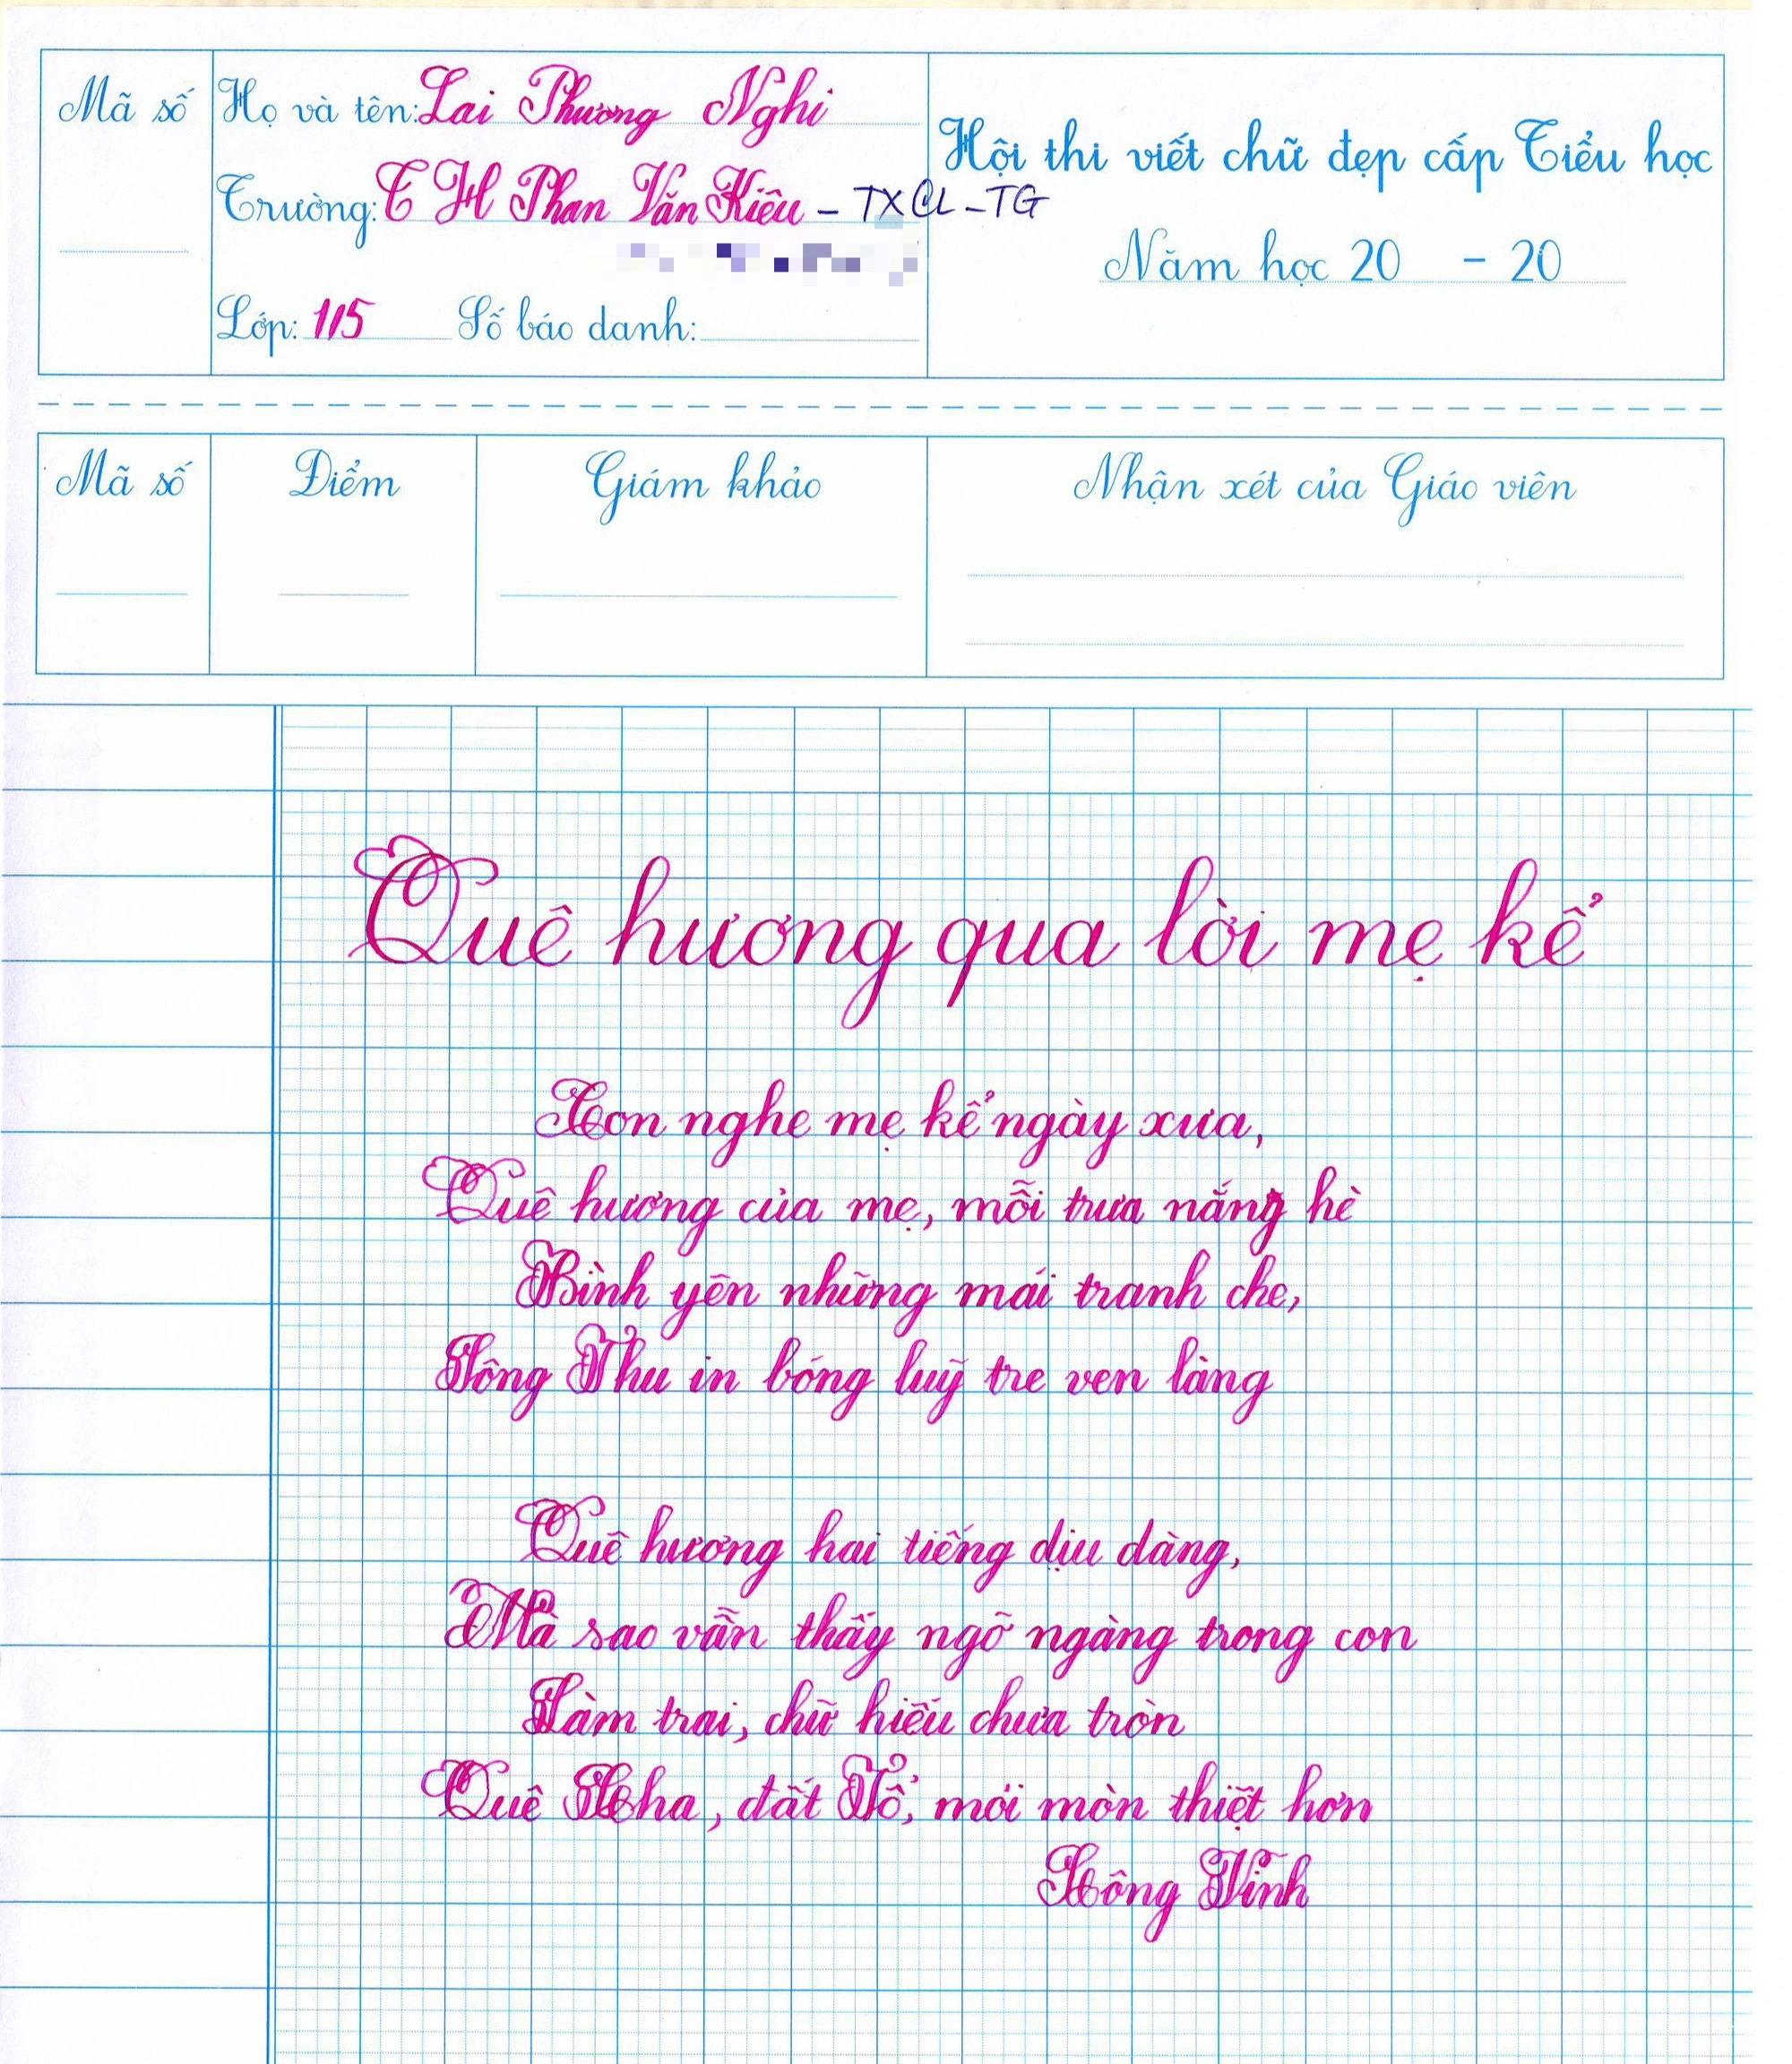 Mã số
Họ và tên: Lai Phương Nghi
Trường: T H Phan Văn Kiêu - TXCL - TG
Lớp: 1/5 Số báo danh:
Hội thi viết chữ đẹp cấp Tiểu học
Năm học 20 - 20
Mã số Điểm Giám khảo Nhận xét của Giáo viên
Quê hương qua lời mẹ kể
Con nghe mẹ kể ngày xưa,
Quê hương của mẹ, mỗi trưa nắng hè
Bình yên những mái tranh che,
Sông Thu in bóng luỹ tre ven làng
Quê hương hai tiếng dịu dàng,
Mà sao vẫn thấy ngỡ ngàng trong con
Làm trai, chữ hiếu chưa tròn
Quê Cha, đất Tổ, mới mòn thiệt hơn
Công Vinh